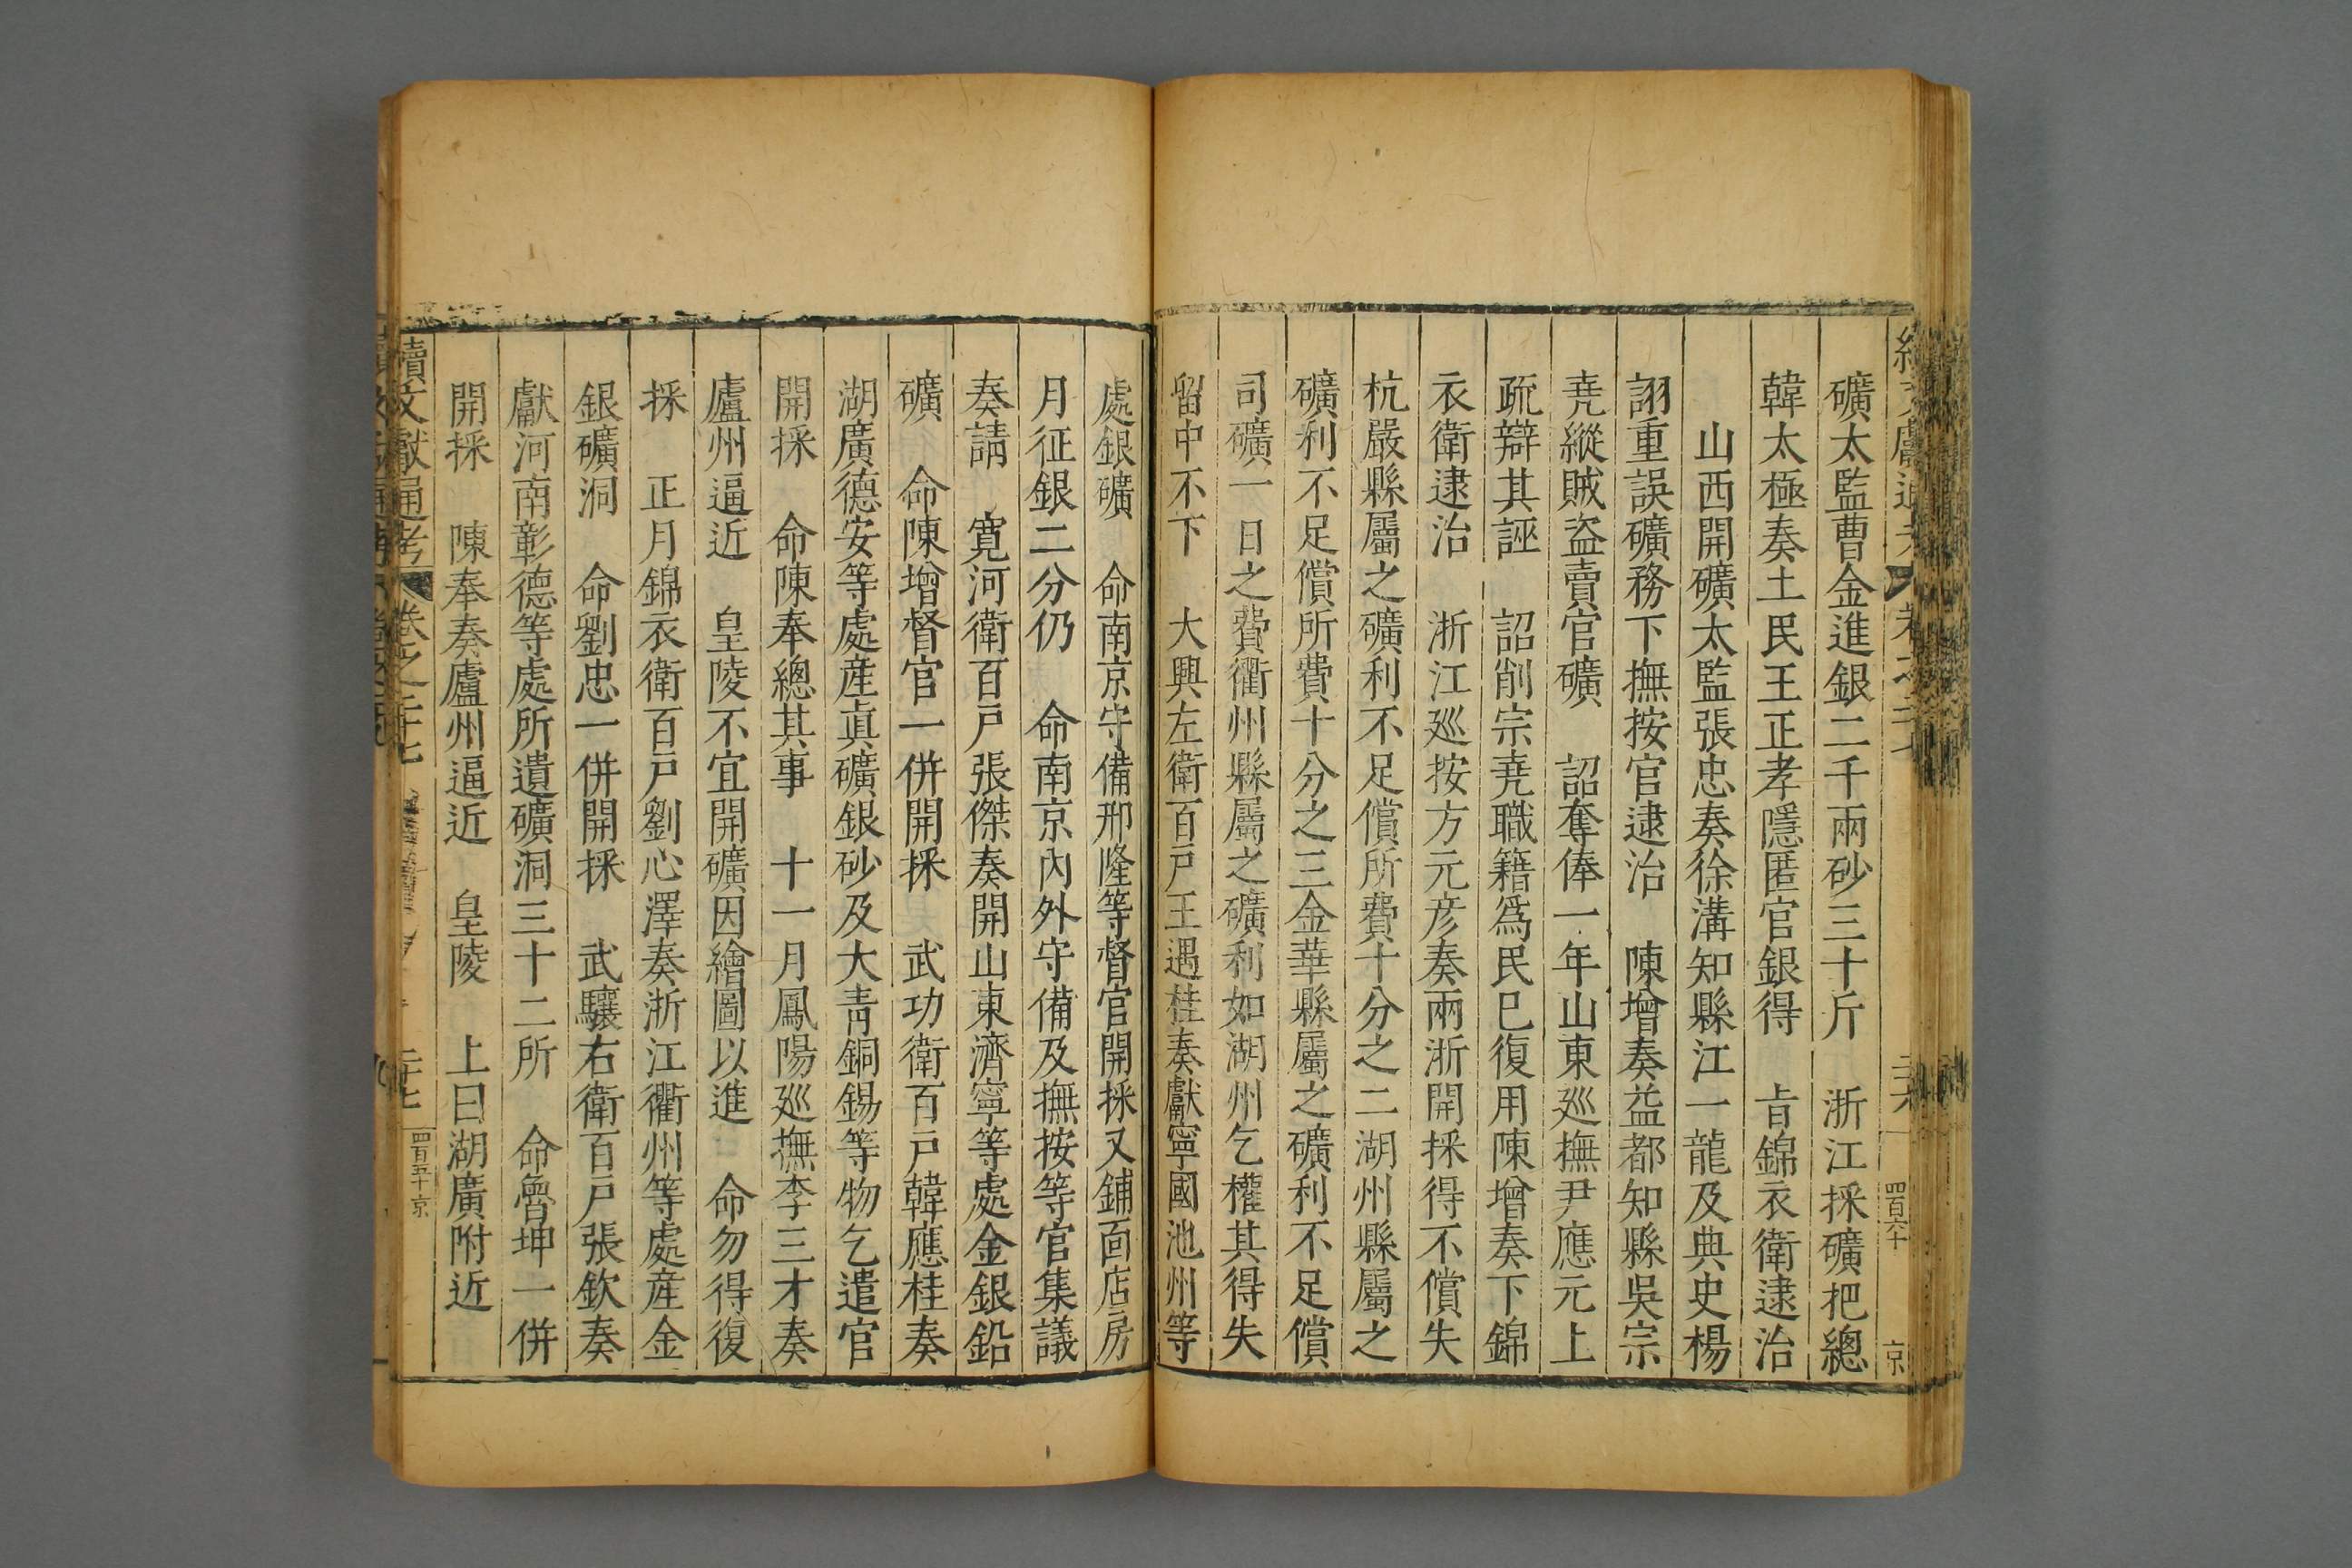 礦太監曹金進銀二千兩砂三十斤　浙江採礦把總
韓太極奏土民王正孝隱匿官銀得　旨錦衣衛逮治
山西開礦太監張忠奏徐溝知縣江一龍及典史楊
詡重誤礦務下撫按官逮治　陳增奏益都知縣吳宗
堯縱賊盜賣官礦　詔奪俸一年山東巡撫尹應元上
疏辯其誣　詔削宗堯職籍爲民已復用陳增奏下錦
衣衛逮治　浙江巡按方元彥奏兩浙開採得不償失
杭嚴縣屬之礦利不足償所費十分之二湖州縣屬之
礦利不足償所費十分之三金華縣屬之礦利不足償
司礦一日之費衢州縣屬之礦利如湖州乞權其得失
留中不下　大興左衛百戸王遇桂奏獻寧國池州等
處銀礦　命南京守備邢隆等督官開採又鋪面店房
月征銀二分仍　命南京內外守備及撫按等官集議
奏請　寛河衛百戸張傑奏開山東濟寧等處金銀鉛
礦　命陳增督官一併開採　武功衛百戸韓應桂奏
湖廣德安等處産眞礦銀砂及大青銅錫等物乞遣官
開採　命陳奉總其事　十一月鳳陽巡撫李三才奏
廬州逼近　皇陵不宜開礦因繪圖以進　命勿得復
採　正月錦衣衛百戸劉心澤奏浙江衢州等處産金
銀礦洞　命劉忠一併開採　武驤右衛百戸張欽奏
獻河南彰德等處所遺礦洞三十二所　命魯坤一併
開採　陳奉奏廬州逼近　皇陵　上曰湖廣附近
續文獻通考　卷之二十七　二十七　四百五十　京
四百六十　京